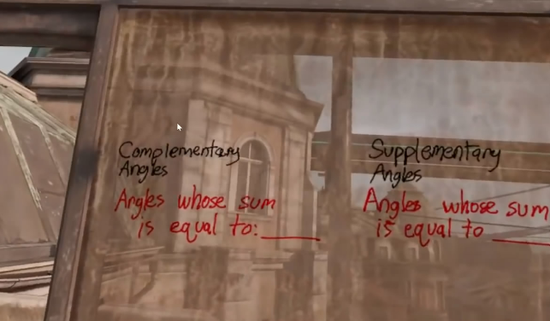 Complementary
Angles
Angles whose sum
is equal to:______
Supplementary
Angles
Angles whose sum
is equal to ______